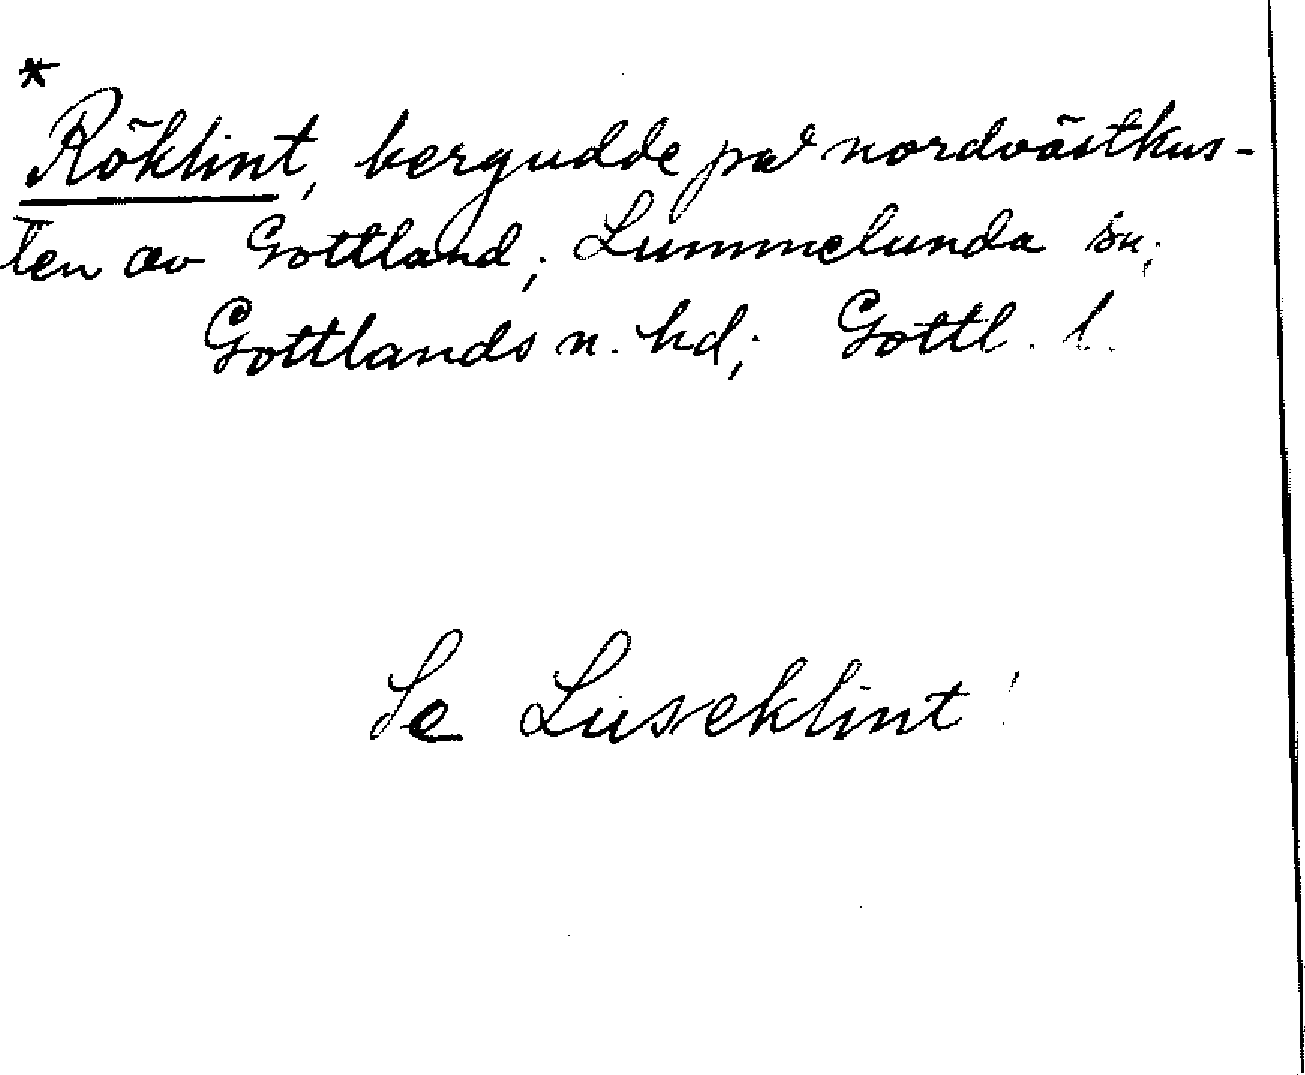 *
Röklint, bergudde på nordvästkus-
ten av Gottland; Lummelunda sn;
Gottlands n. hd; Gottl. l.
Se Luseklint!